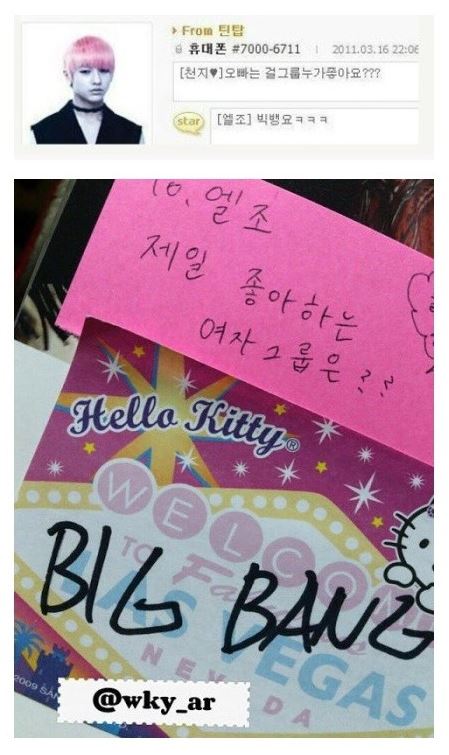 From 틴탑
휴대폰 #7000-6711 | 2011.03.16 22:06
[천지♥]오빠는 걸그룹누가좋아요???
star [엘조] 빅뱅요ㅋㅋㅋ
10. 엘조
제일 좋아하는
여자그룹은??
Hello Kitty®
WELCOME
TO Fabulous
LAS VEGAS
NEVADA
BIG BANG
@wky_ar